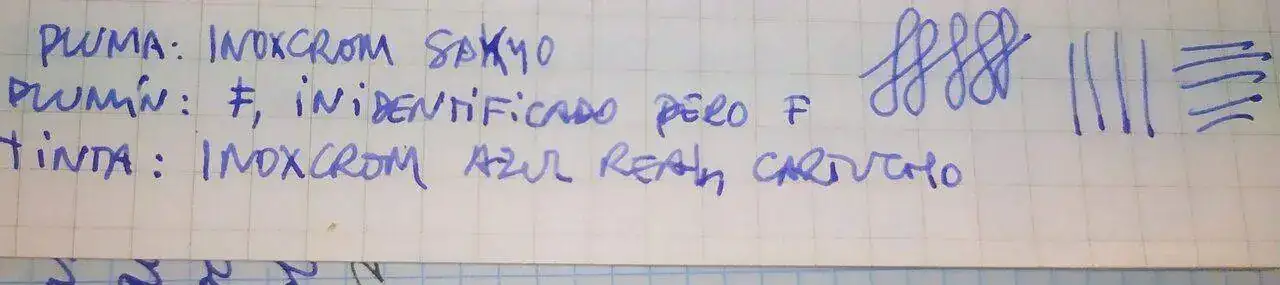 PLUMA: INOXCROM SAKYO
PLUMÍN: F, INIDENTIFICADO PERO F
TINTA: INOXCROM AZUL REAL, CARTUCHO